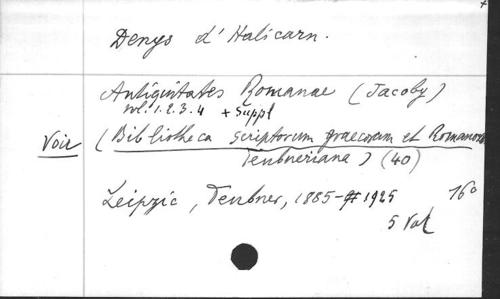 Denys d'Halicarn.
Antiquitates Romanae (Jacoby)
vol. 1.2.3.4 + Suppl
Voir (Bibliotheca scriptorum graecorum et Romanorum
Teubneriana) (40)
Leipzic, Teubner, 1885-1925 16°
5 Vol